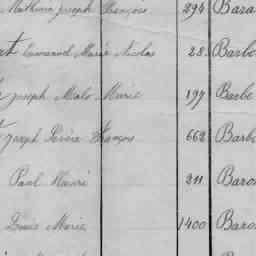 Mathurin Joseph François 294 Bara
Emmanuel Marie Nicolas 28 Barbo
Joseph Malo Marie 197 Barbe
Joseph Désiré François 662 Barb
Paul Henri 211 Baro
Louis Marie 1400 Baron